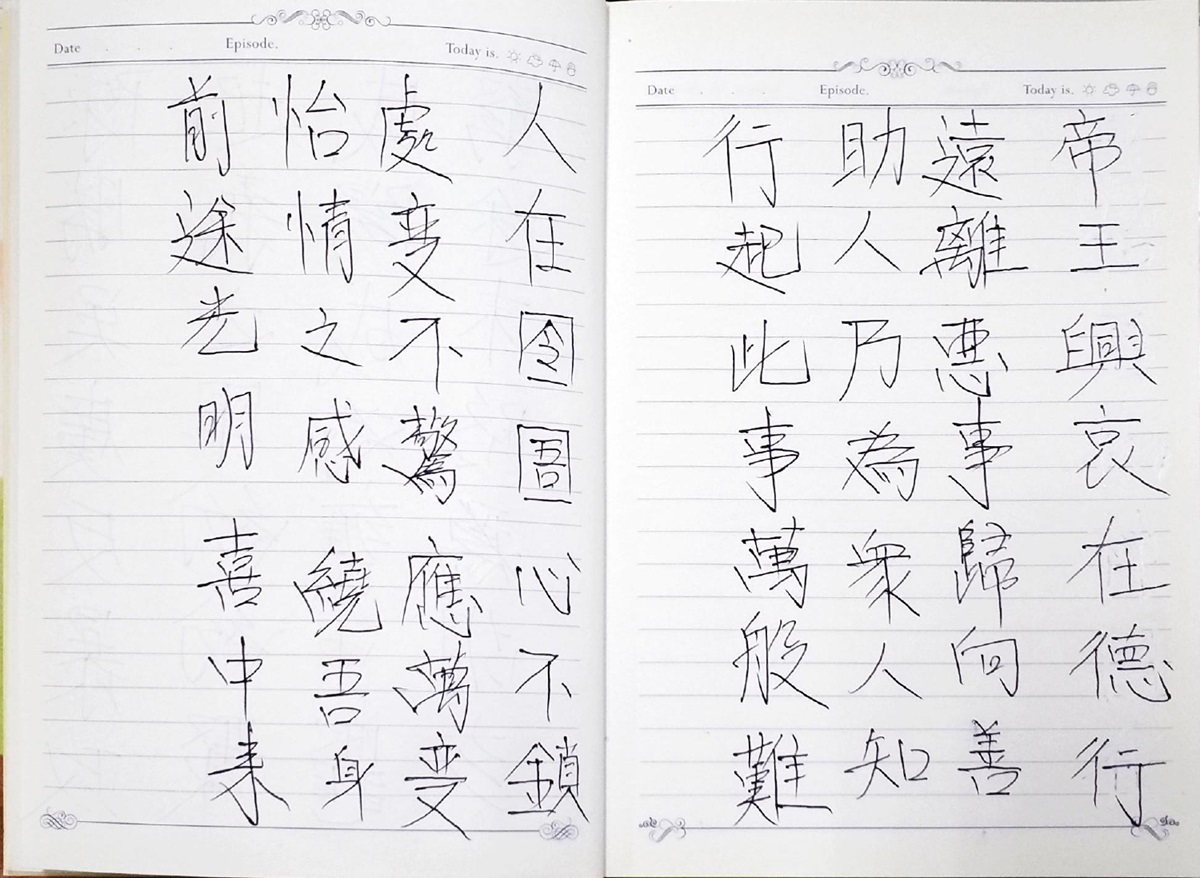 Date . . . Episode. Today is.
帝王興哀在德行
遠離惡事歸向善
助人乃為眾人知
行起此事萬般難
Date . . . Episode. Today is.
人在囹圄心不鎖
處变不驚應萬变
怡情之感繞吾身
前途光明喜中来